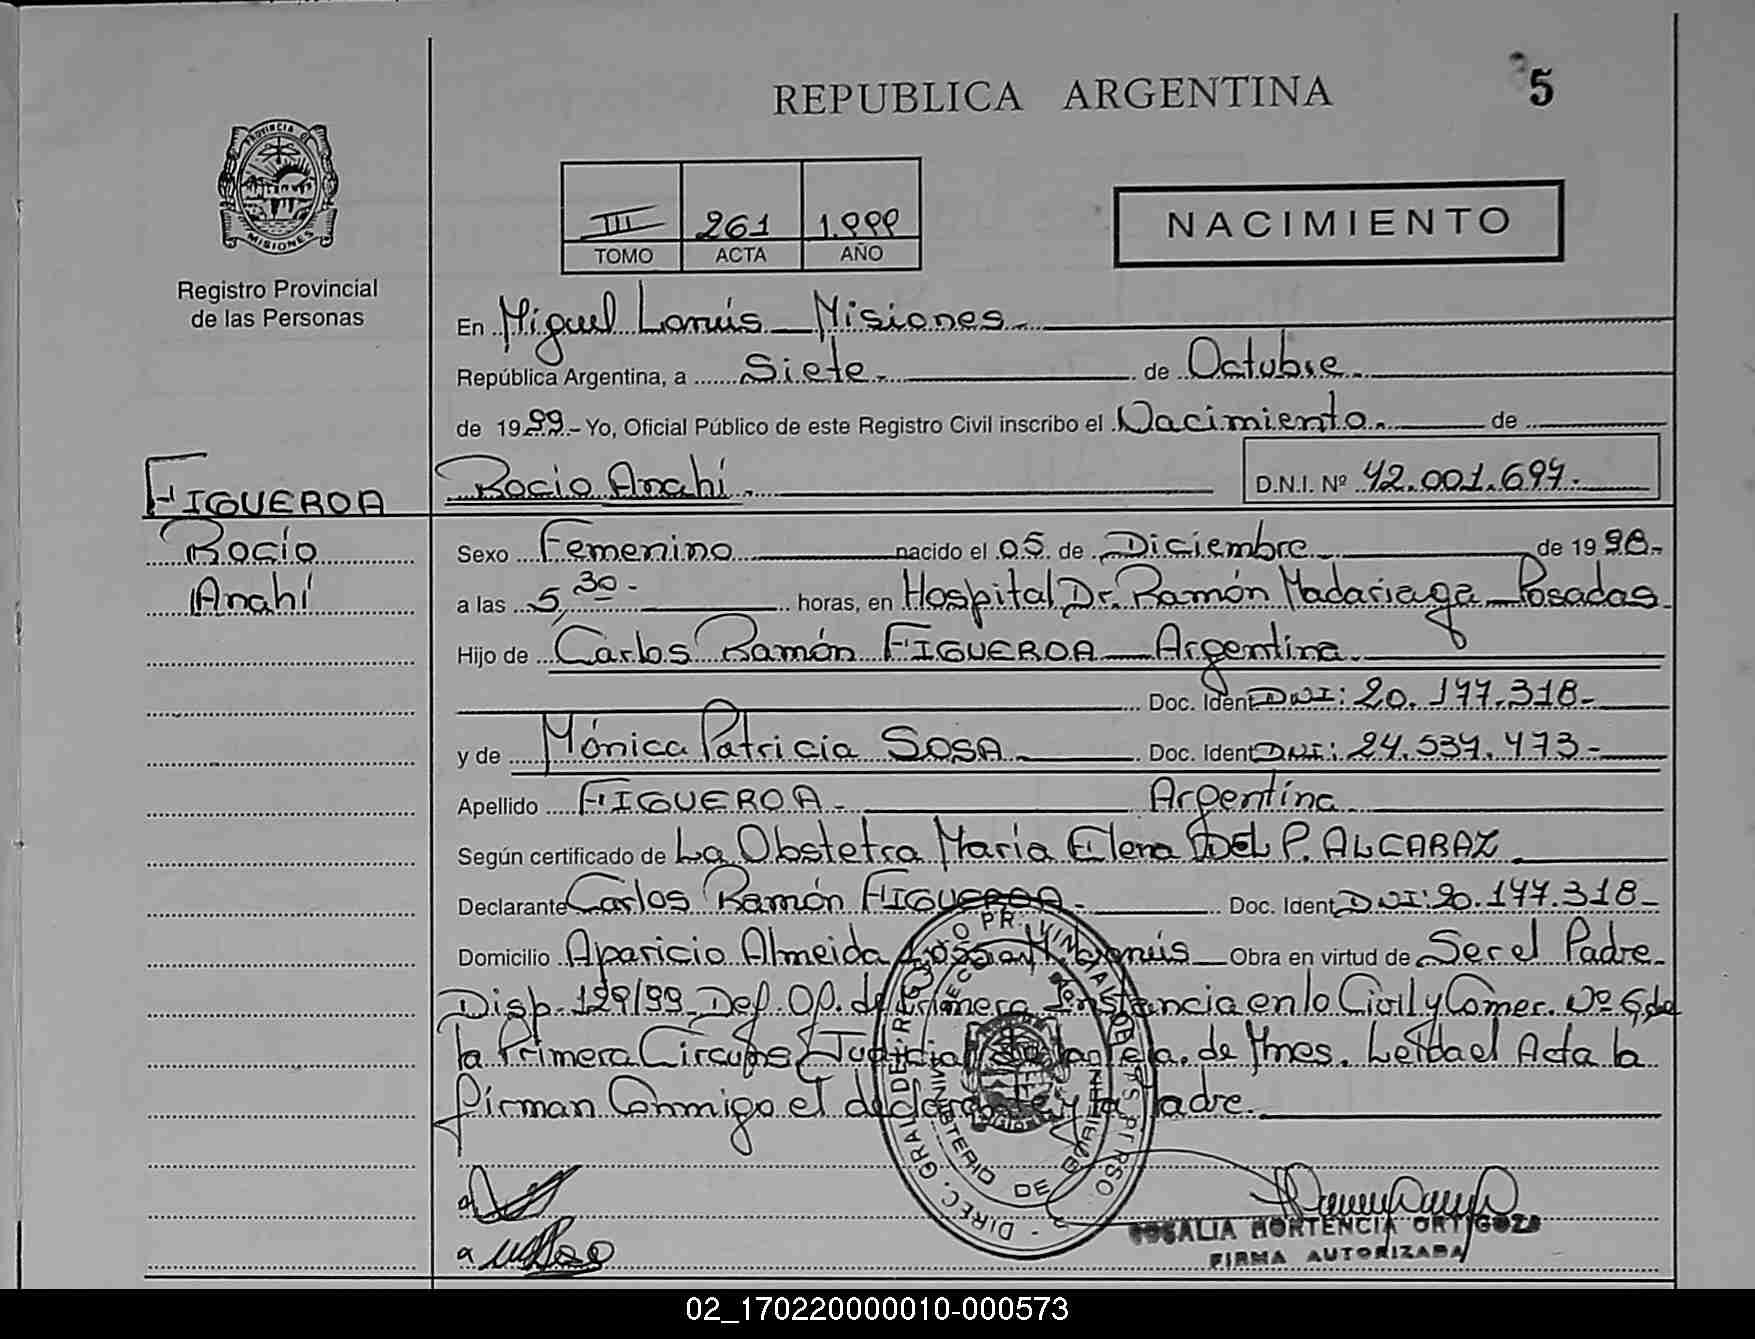 REPUBLICA ARGENTINA
5
PROVINCIA DE
MISIONES
Registro Provincial
de las Personas
III 261 1.999
TOMO ACTA AÑO
NACIMIENTO
En Miguel Lanús Misiones
República Argentina, a Siete de Octubre
de 1999 - Yo, Oficial Público de este Registro Civil inscribo el Nacimiento de
FIGUEROA
Rocío
Anahí
Rocio Anahí
D.N.I. Nº 42.001.694.
Sexo Femenino nacido el 05 de Diciembre de 1998-
a las 5,30- horas, en Hospital Dr. Ramón Madariaga Posadas
Hijo de Carlos Ramón FIGUEROA Argentina
Doc. Ident DNI: 20.177.318-
y de Mónica Patricia SOSA Doc. Ident DNI: 24.537.473-
Apellido FIGUEROA- Argentina
Según certificado de La Obstetra María Elena DEL P. ALCARAZ
Declarante Carlos Ramón FIGUEROA- Doc. Ident DNI: 20.177.318-
Domicilio Aparicio Almeida Lanús Obra en virtud de Ser el Padre
Disp. 129/99 Def. Of. de Primera Instancia en lo Civil y Comer. Nº 6 de
la Primera Circuns. Judicial de la Pcia. de Mnes. Leida el Acta la
firman Conmigo el declarante y la Madre.
ROSALIA HORTENCIA ORTIGOZA
FIRMA AUTORIZADA
MINISTERIO DE GOBIERNO
02_170220000010-000573